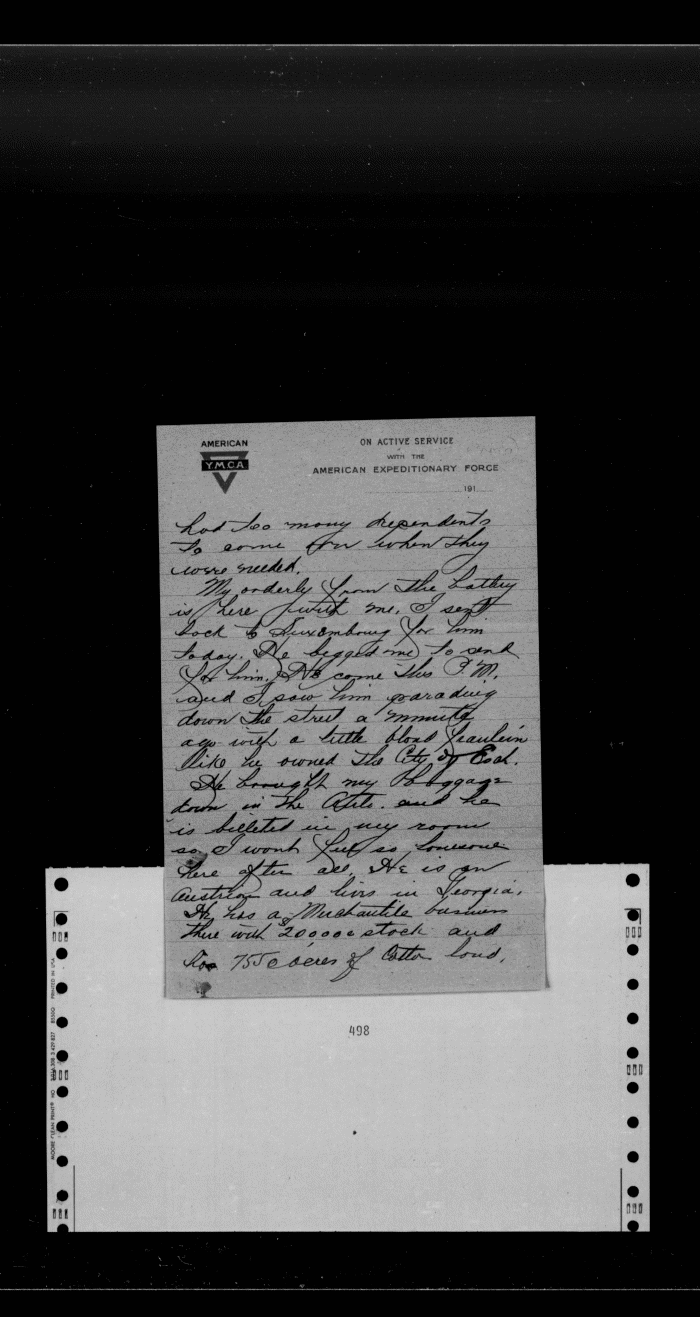 AMERICAN
Y.M.C.A
ON ACTIVE SERVICE
WITH THE
AMERICAN EXPEDITIONARY FORCE
191
had too many dependents
to come for when they
were needed.
My orderly from the battery
is here with me. I sent
back to Luxembourg for him
today. He begged me to send
for him. He come this P.M.
and I saw him parading
down the street a minute
ago with a little blond fraulein
like he owned the City of Esch.
He brought my baggage
down in the and he
is billeted in my room
so I wont feel so lonesome
here after all. He is an
Austrian and livs in Georgia.
He has a Merchantile business
there with $20000 stock and
has 7550 acres of Cotton land.
498
MOORE CLEAN PRINT
PRINTED IN USA